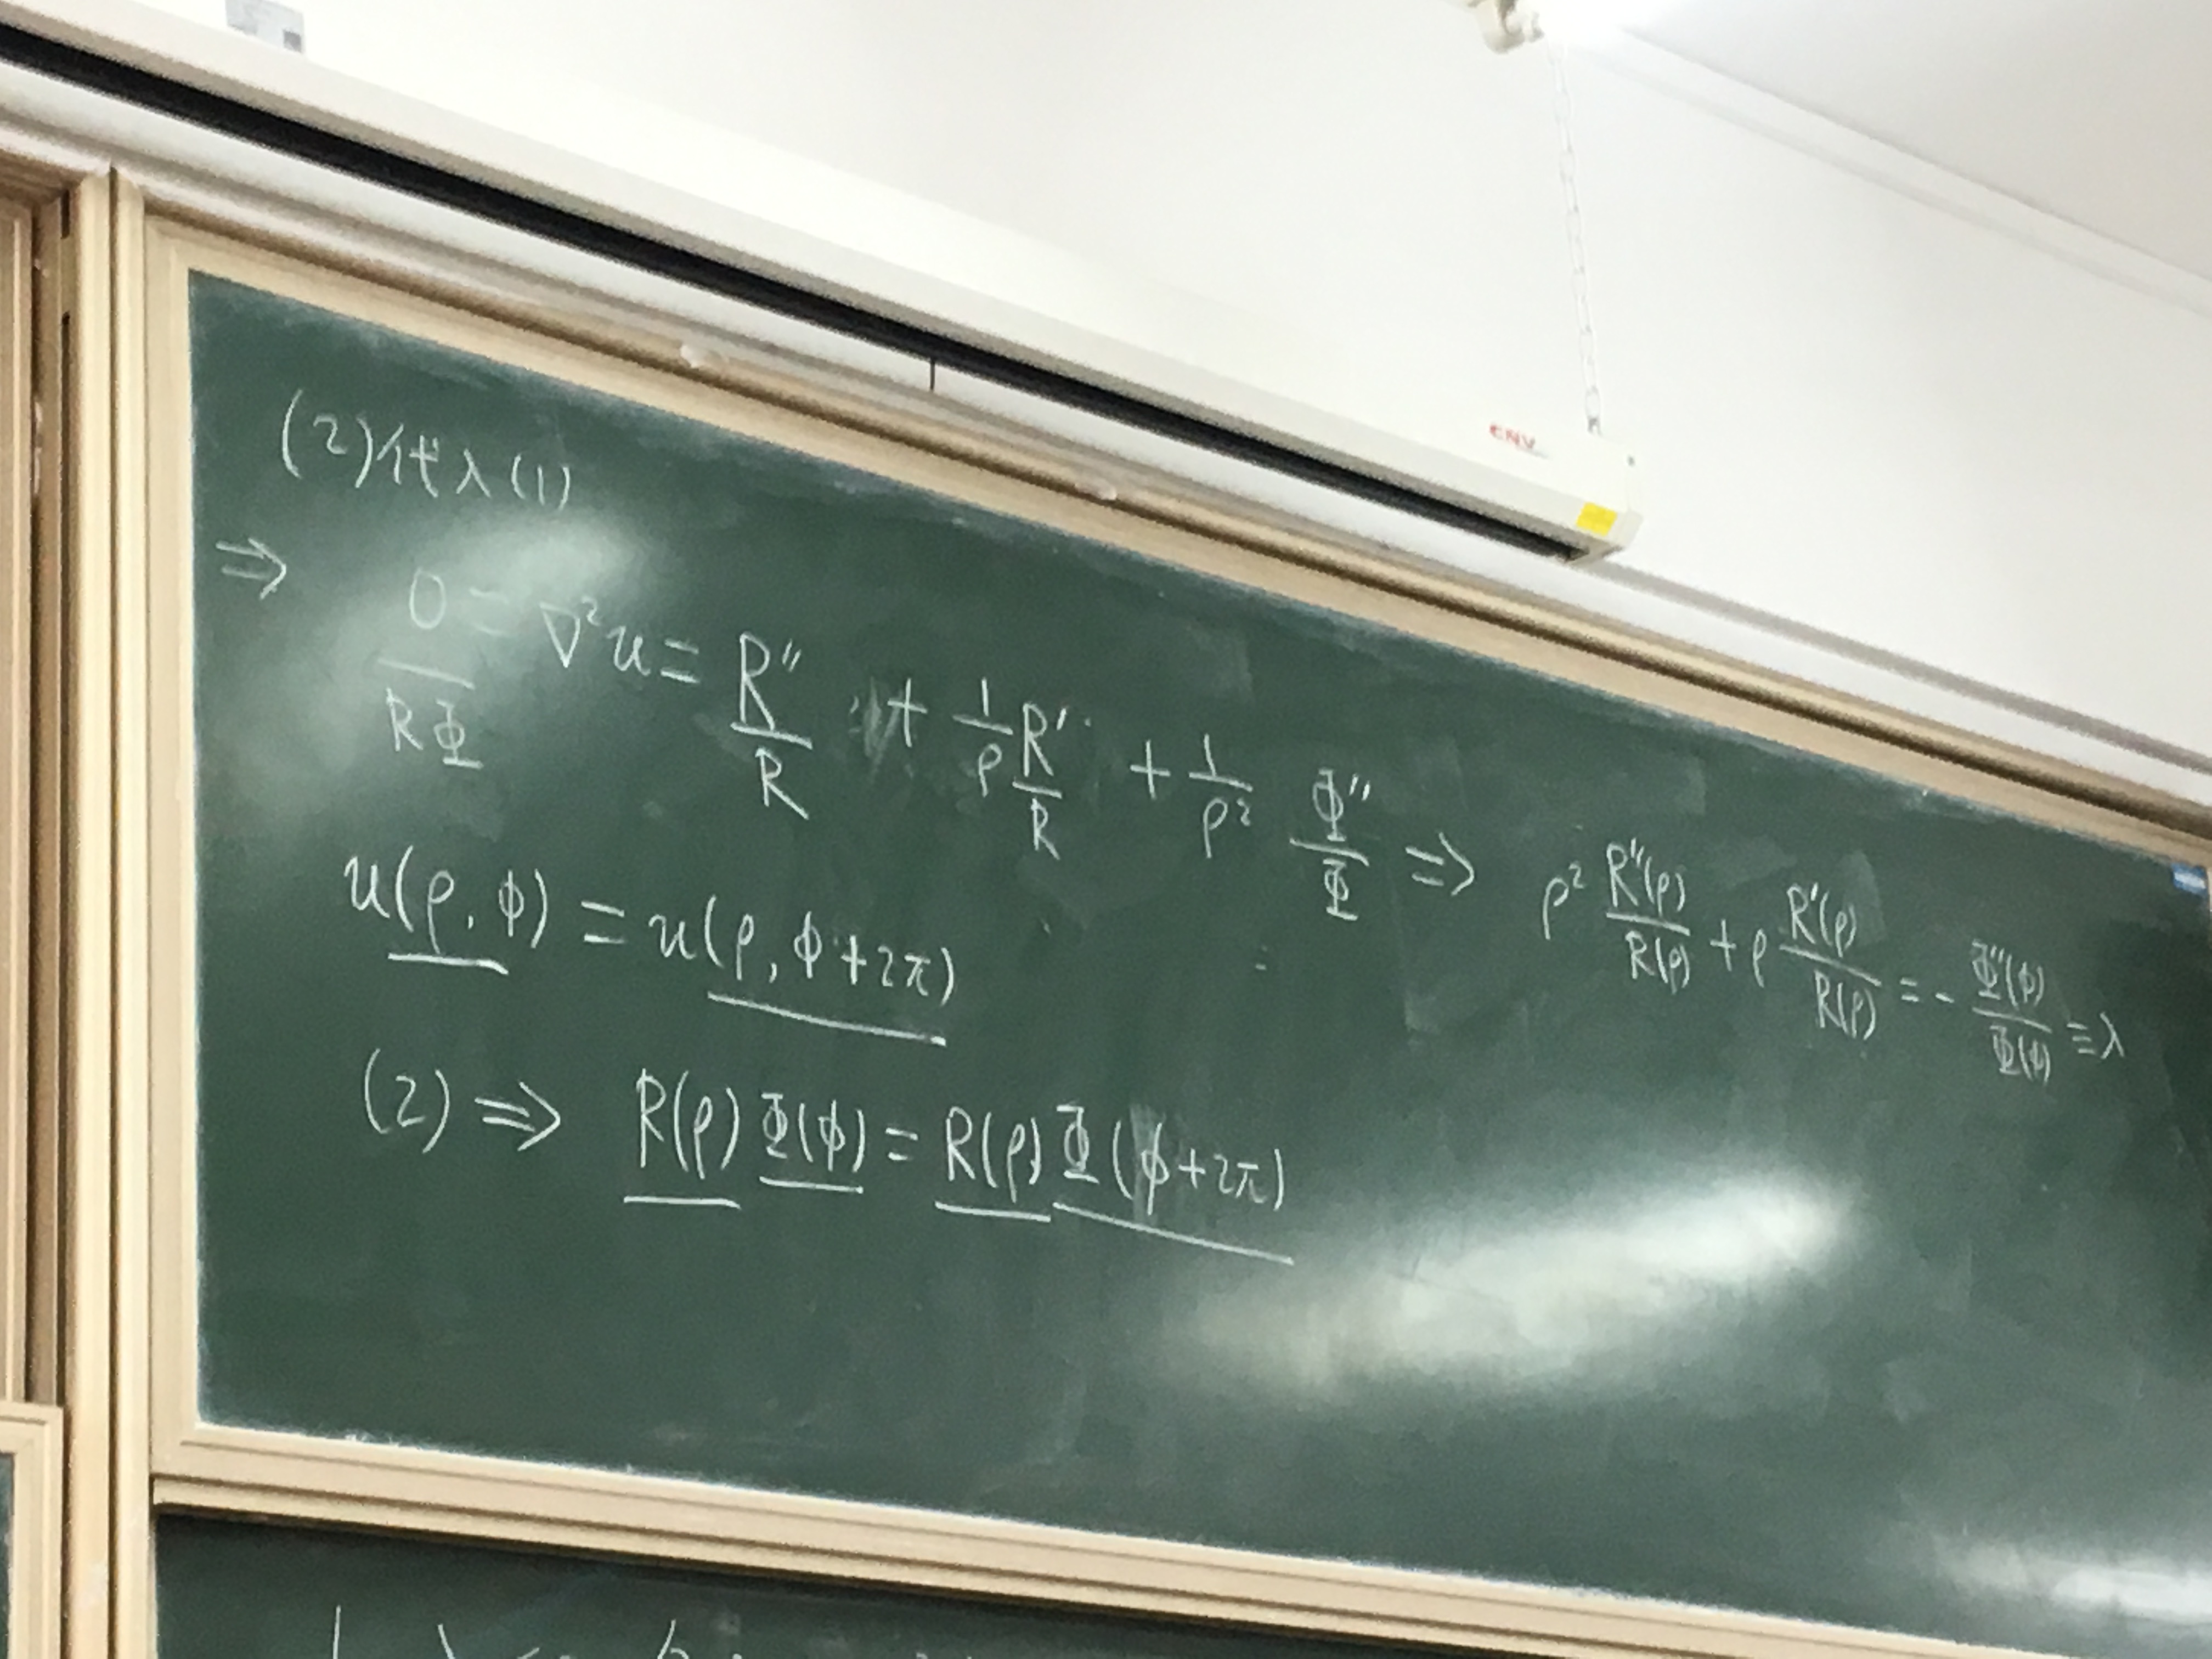 CNV
(2)代入(1)
⇒ 0/(RΦ) = ∇²u = R''/R + 1/ρ R'/R + 1/ρ² Φ''/Φ ⇒ ρ² R''(ρ)/R(ρ) + ρ R'(ρ)/R(ρ) = - Φ''(φ)/Φ(φ) = λ
u(ρ, φ) = u(ρ, φ+2π)
(2) ⇒ R(ρ) Φ(φ) = R(ρ) Φ(φ+2π)